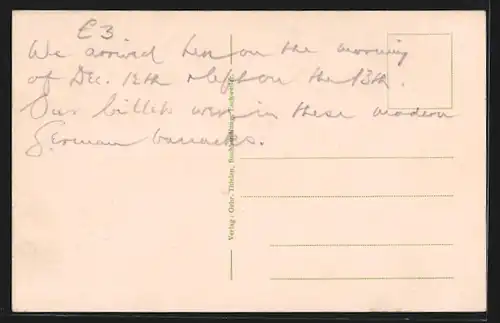 E3
We arrived here on the morning
of Dec. 12th & left on the 13th.
Our billets were in these modern
German barracks.
Verlag: Gebr. Thielen,